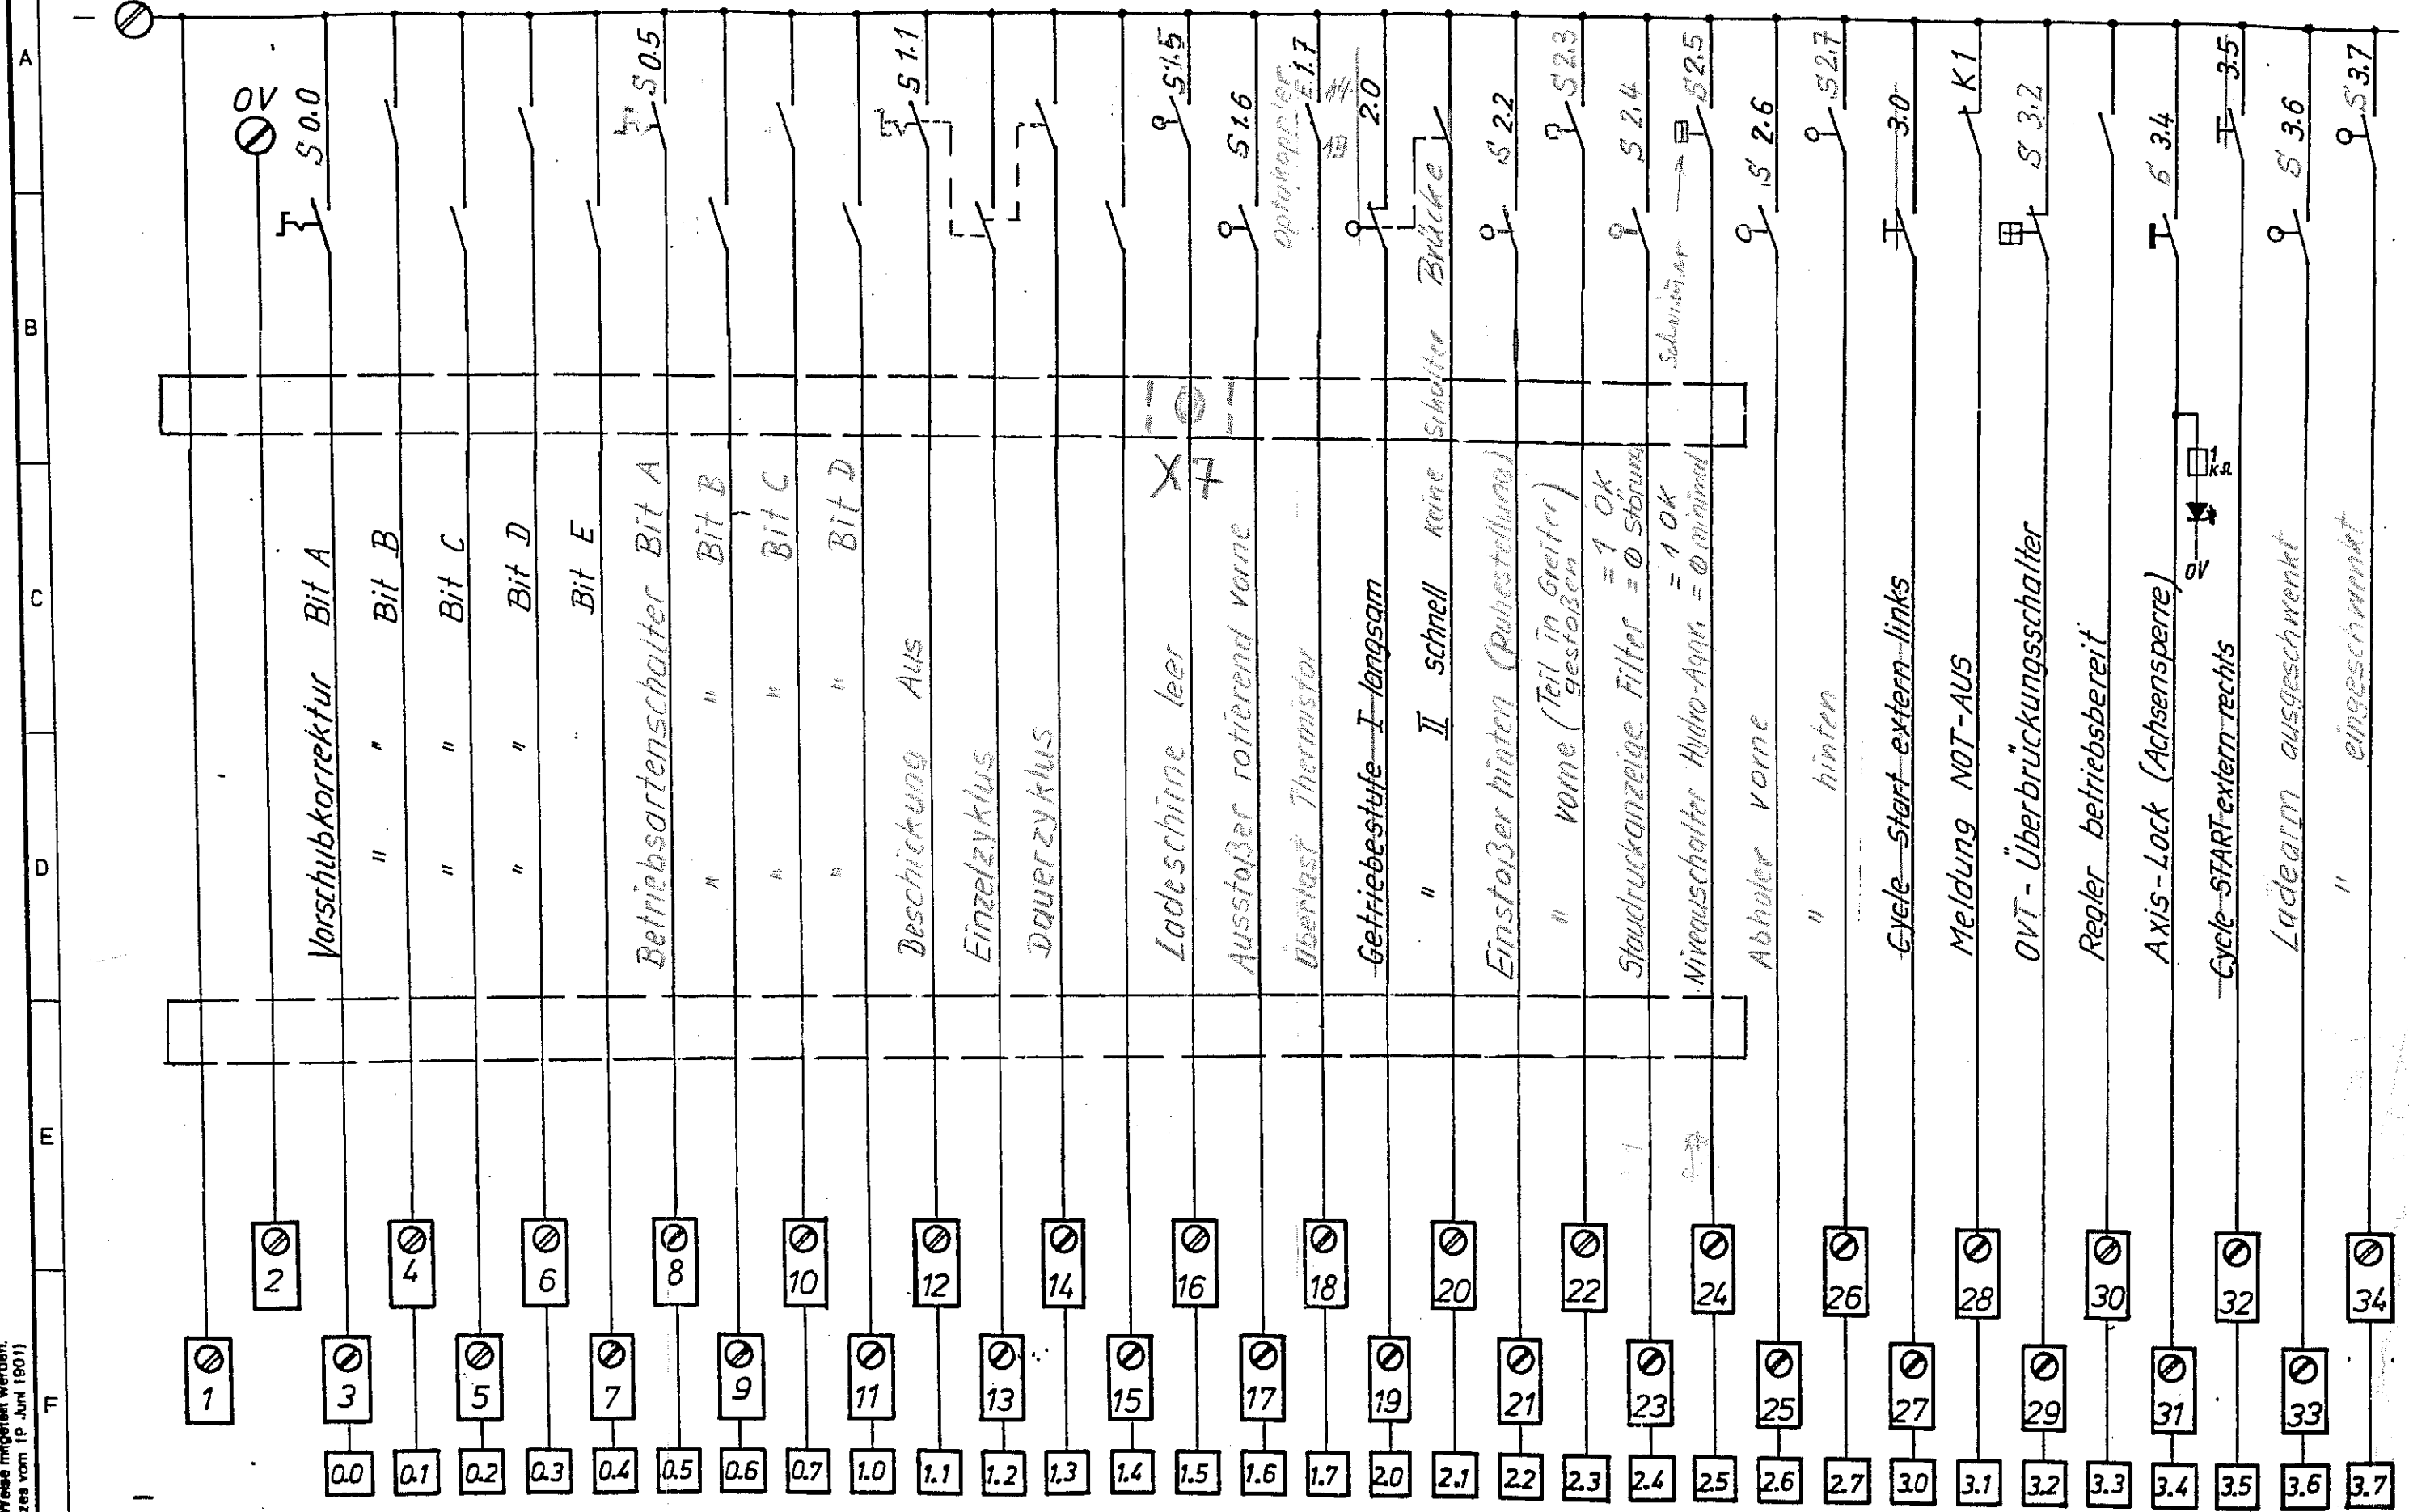 A
B
C
D
E
F
0V
S 0.0
S 0.5
S 1.1
S 1.5
S 1.6
Optokoppler
E 1.7
2.0
S 2.2
S 2.3
S 2.4
Schwimmer
S 2.5
S 2.6
S 2.7
3.0
K1
S 3.2
S 3.4
3.5
S 3.6
S 3.7
X7
1
kΩ
0V
Vorschubkorrektur Bit A
" " Bit B
" " Bit C
" " Bit D
Bit E
Betriebsartenschalter Bit A
" " Bit B
" " Bit C
" " Bit D
Beschickung Aus
Einzelzyklus
Dauerzyklus
Ladeschine leer
Ausstoßer rotierend vorne
Überlast Thermistor
Getriebestufe I langsam
" II schnell keine Schalter Brücke
Einstoßer hinten (Ruhestellung)
" vorne (Teil in Greifer
gestoßen)
Staudruckanzeige Filter = 1 OK
= 0 Störung
Niveauschalter Hydro-Aggr. = 1 OK
= 0 minimal
Abholer vorne
" hinten
Cycle Start extern links
Meldung NOT-AUS
OVT-Überbrückungsschalter
Regler betriebsbereit
Axis-Lock (Achsensperre)
Cycle START extern rechts
Ladearm ausgeschwenkt
" eingeschwenkt
2
4
6
8
10
12
14
16
18
20
22
24
26
28
30
32
34
1
3
5
7
9
11
13
15
17
19
21
23
25
27
29
31
33
0.0
0.1
0.2
0.3
0.4
0.5
0.6
0.7
1.0
1.1
1.2
1.3
1.4
1.5
1.6
1.7
2.0
2.1
2.2
2.3
2.4
2.5
2.6
2.7
3.0
3.1
3.2
3.3
3.4
3.5
3.6
3.7